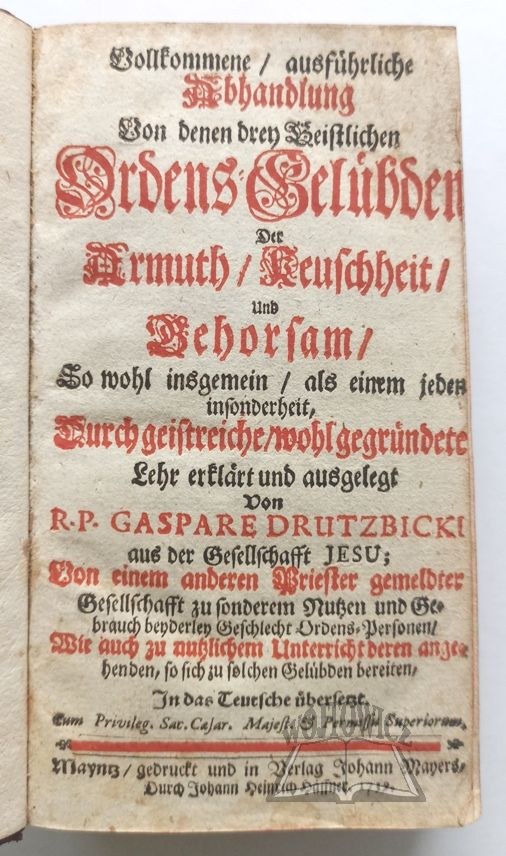 Vollkommene / ausführliche
Abhandlung
Von denen drey Geistlichen
Ordens-Gelübden
Der
Armuth / Keuschheit /
Und
Gehorsam /
So wohl insgemein / als einem jeden
insonderheit,
Durch geistreiche / wohl gegründete
Lehr erklärt und ausgelegt
Von
R.P. GASPARE DRUTZBICKI
aus der Gesellschafft JESU;
Von einem anderen Priester gemeldter
Gesellschafft zu sonderem Nutzen und Ge-
brauch beyderley Geschlecht Ordens-Personen /
Wie auch zu nutzlichem Unterricht deren ange-
henden, so sich zu solchen Gelübden bereiten,
In das Teutsche übersetzt.
Cum Privileg. Sac. Cæsar. Majest. & Permissu Superiorum.
Mayntz / gedruckt und in Verlag Johann Mayers,
Durch Johann Heinrich Häffner.
WÓJTOWICZ